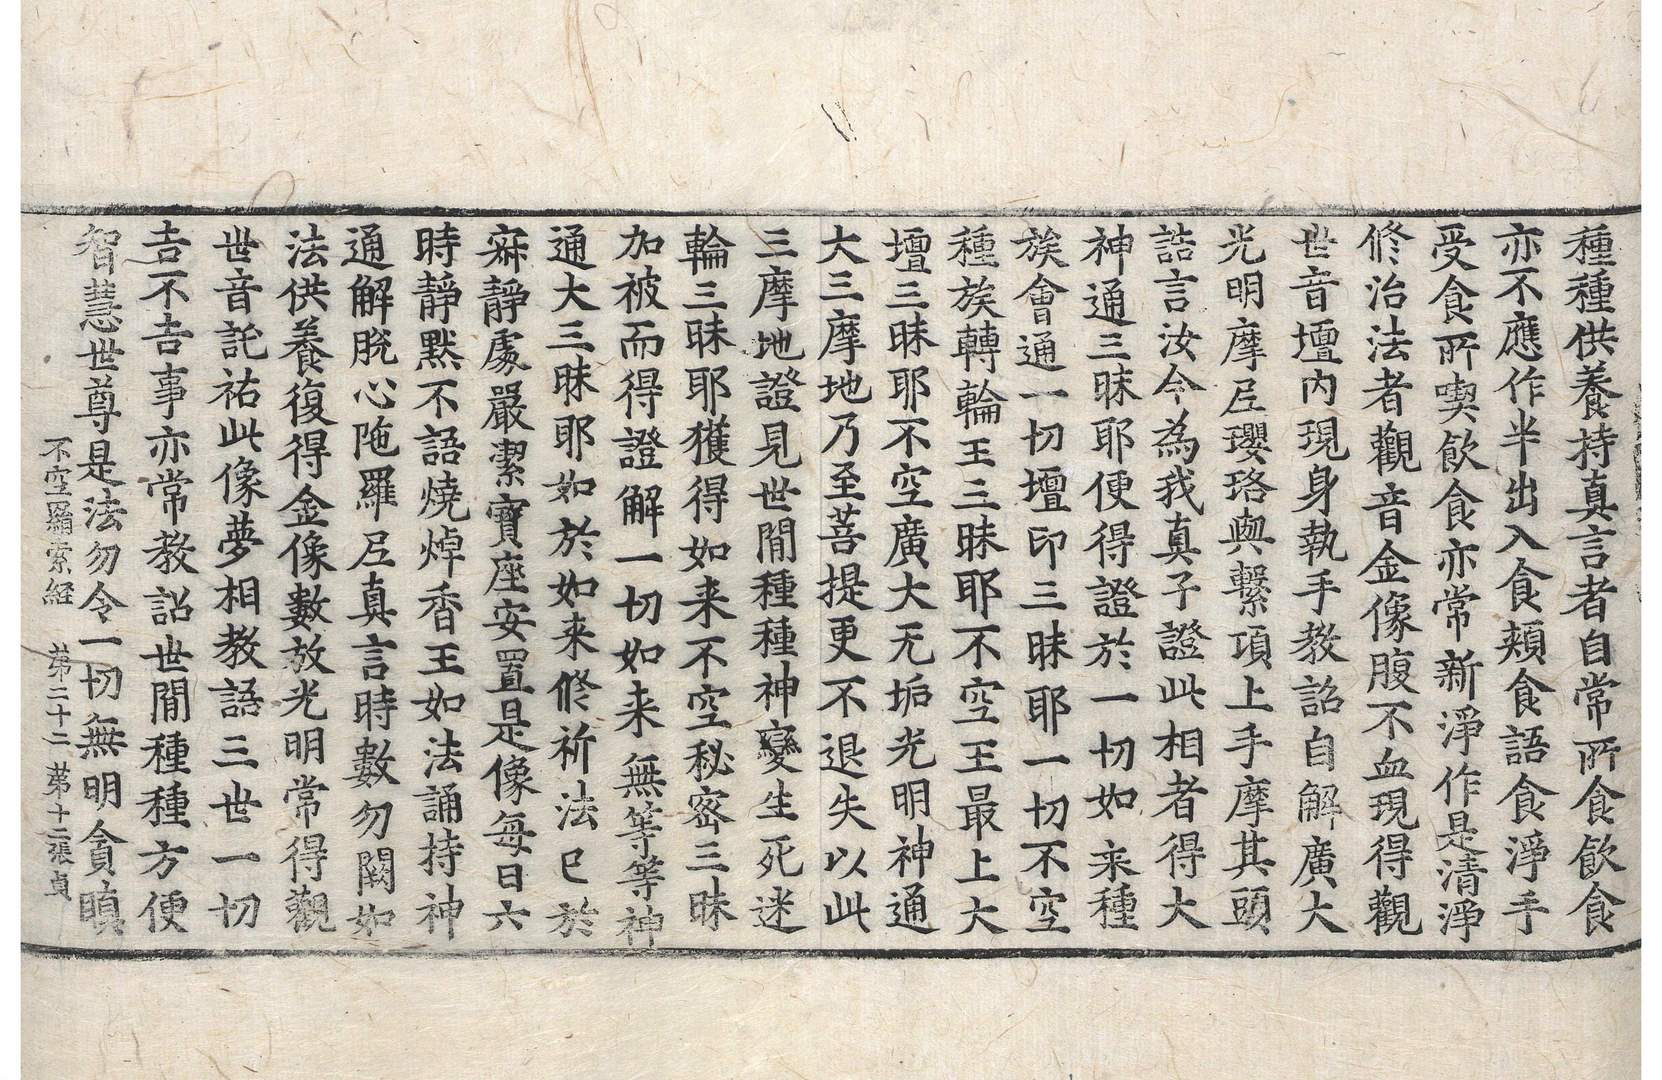 種種供養持真言者自常所食飲食
亦不應作半出入食頰食語食淨手
受食所喫飲食亦常新淨作是清淨
修治法者觀音金像腹不血現得觀
世音壇內現身執手教詔自解廣大
光明摩尼瓔珞與繫項上手摩其頭
誥言汝今為我真子證此相者得大
神通三昧耶便得證於一切如来種
族會通一切壇印三昧耶一切不空
種族轉輪王三昧耶不空王最上大
壇三昧耶不空廣大无垢光明神通
大三摩地乃至菩提更不退失以此
三摩地證見世間種種神變生死迷
輪三昧耶獲得如来不空秘密三昧
加被而得證解一切如来無等等神
通大三昧耶如於如来修祈法已於
寂靜處嚴潔寶座安置是像每日六
時靜默不語燒焯香王如法誦持神
通解脫心陁羅尼真言時數勿闕如
法供養復得金像數放光明常得觀
世音託祐此像夢相教語三世一切
吉不吉事亦常教詔世間種種方便
智慧世尊是法勿令一切無明貪瞋
不空羂索經 苐二十二 苐十二張 貞